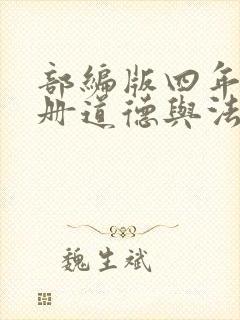 部編版四年
册道德與法
魏生斌